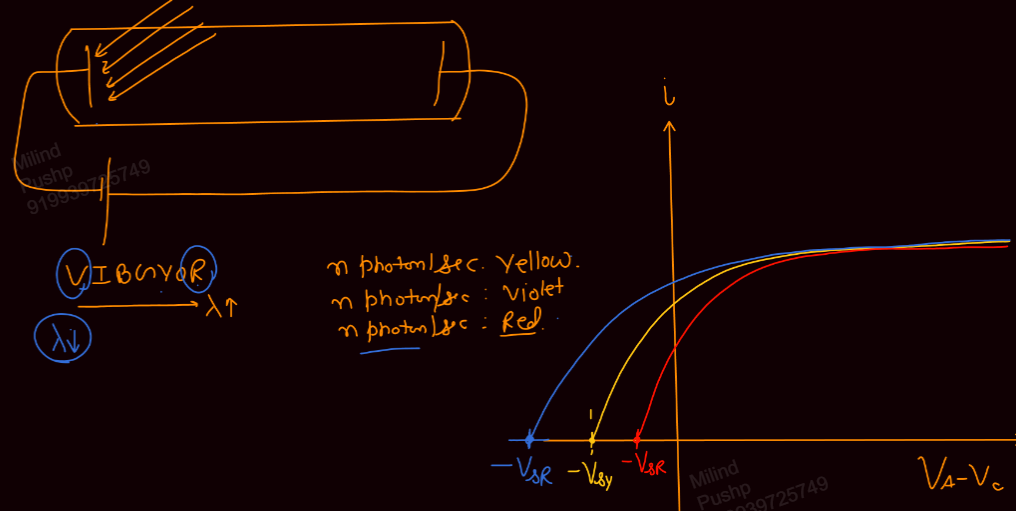 i
Milind
Pushp
919939725749
VIBGYOR
λ↑
λ↓
n photon/sec. Yellow.
n photon/sec : Violet
n photon/sec : Red.
-VsR
-Vsy
-VsR
VA-Vc
Milind
Pushp
939725749